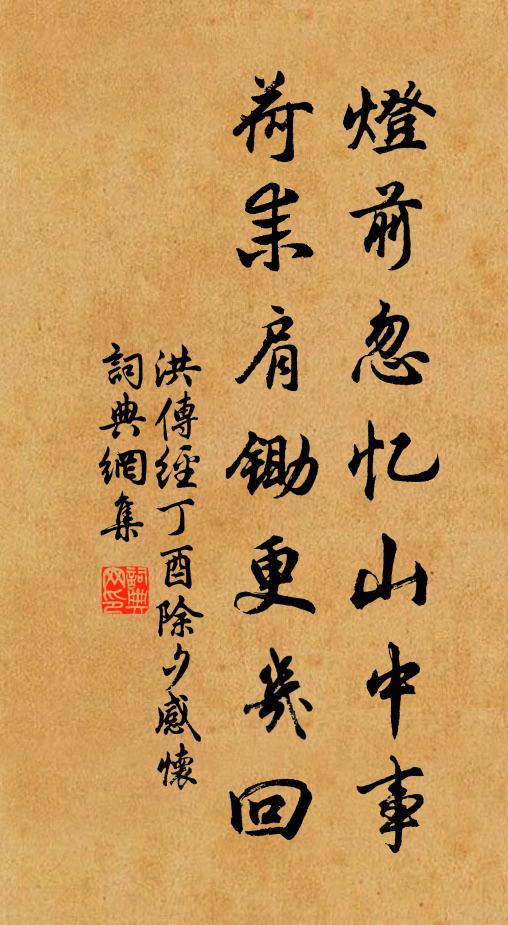 燈前忽忆山中事
荷耒肩鋤更幾回
洪傳經丁酉除夕感懷
詞典網集
詞典网印